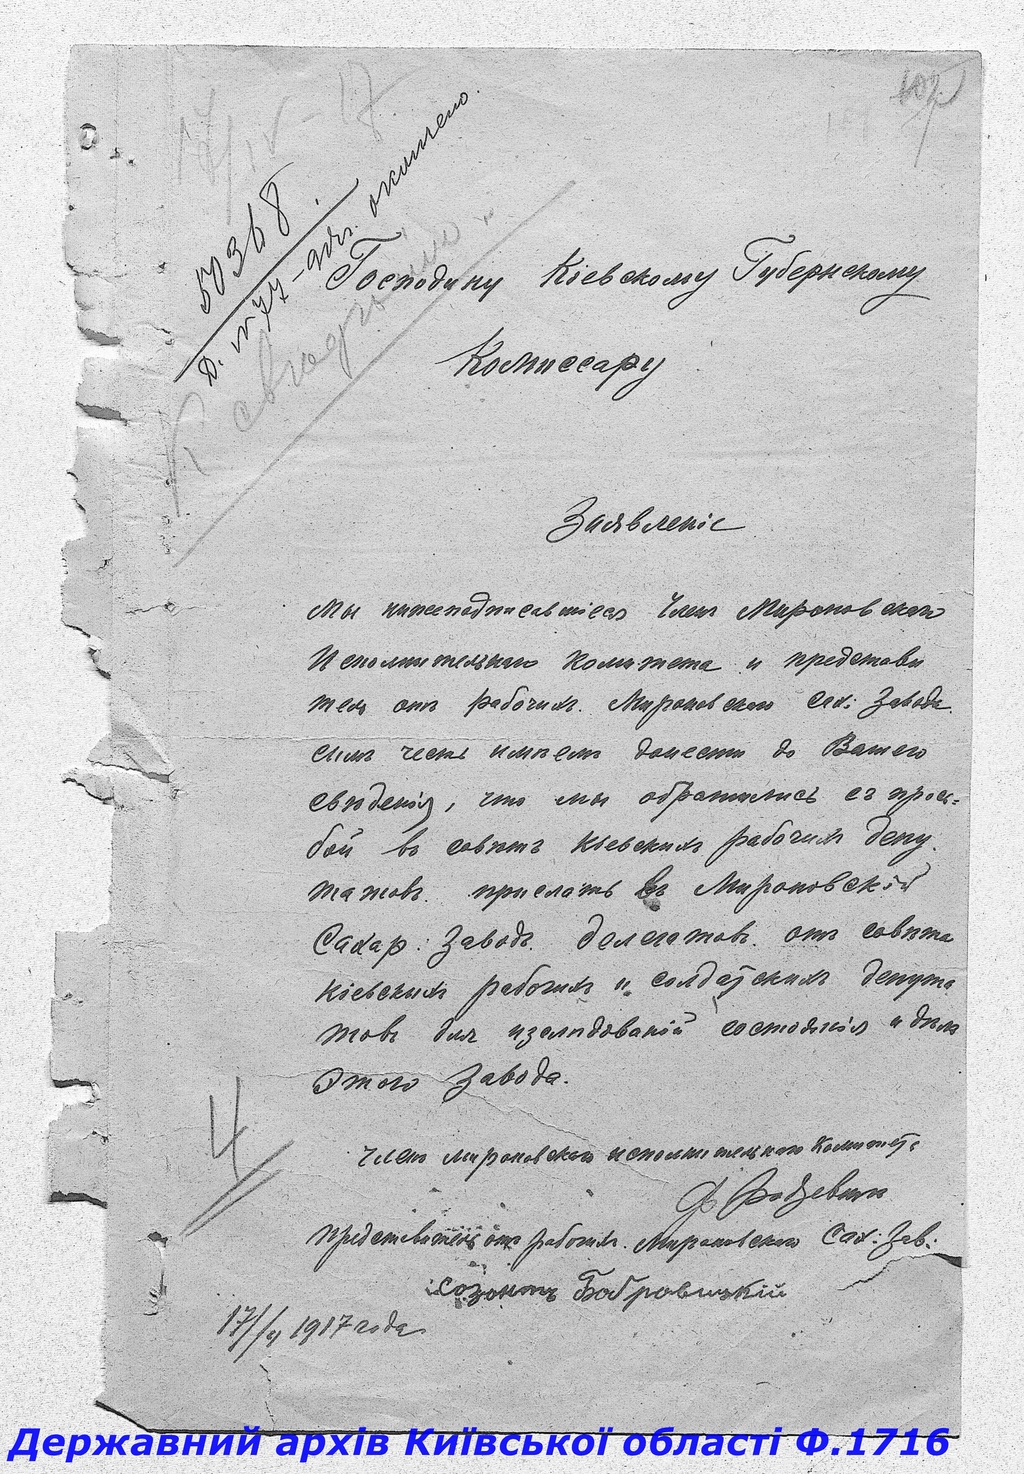 50368.
Д. №77-917. окончено.
К сведению.
Господину Кіевскому Губернскому
Комиссару
Заявленіе
Мы нижеподписавшіеся Члены Мироновскаго
Исполнительнаго Комитета и представи
тель отъ рабочихъ. Мироновскаго Сах: Завода
симъ честь имѣемъ донести до Вашего
свѣденія, что мы обратились съ прось-
бой въ совѣтъ Кіевскихъ рабочихъ депу.
татовъ. прислать въ Мироновскій
Сахар. Заводъ. делегатовъ. отъ совѣта
Кіевскихъ рабочихъ и солдатскихъ депута
товъ для изслѣдованій состоянія и дѣлъ
Этого Завода.
Членъ мироновскаго исполнительнаго Комитета
Представитель отъ рабочихъ. Мироновскаго Сах: Зав:
Созонтъ Бобровицкій
17/IV 1917 года
Державний архів Київської області Ф.1716